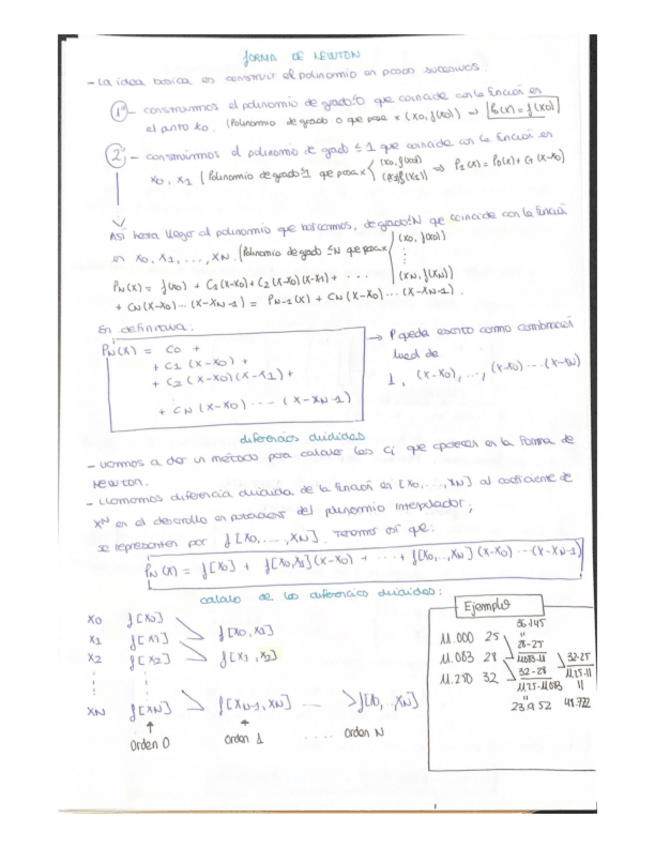 FORMA DE NEWTON
- La idea basica es construir el polinomio en pasos sucesivos.
1º - construimos el polinomio de grado 0 que coincide con la función en
el punto x0. (Polinomio de grado 0 que pasa x (x0, f(x0)) ⇒ P0(x) = f(x0)
2º - construimos el polinomio de grado ≤ 1 que coincide con la función en
x0, x1 (Polinomio de grado 1 que pasa x (x0, f(x0)) (x1, f(x1)) ⇒ P1(x) = P0(x) + C1 (x-x0)
Así hasta llegar al polinomio que buscamos, de grado ≤ N que coincida con la función
en x0, x1, ..., xN. (Polinomio de grado ≤ N que pasa x (x0, f(x0)) ⋮ (xN, f(xN))
PN(x) = f(x0) + C1(x-x0) + C2(x-x0)(x-x1) + ...
+ CN(x-x0)...(x-xN-1) = PN-1(x) + CN(x-x0)...(x-xN-1).
En definitiva:
PN(x) = C0 +
+ C1 (x-x0) +
+ C2 (x-x0)(x-x1) +
+ CN (x-x0) ---- (x-xN-1)
→ P queda escrito como combinación
lineal de
1, (x-x0), ..., (x-x0)...(x-xN)
diferencias divididas
- vamos a dar un método para calcular los ci que aparecen en la forma de
Newton.
- Llamamos diferencia dividida de la función en [x0, ..., xN] al coeficiente de
xN en el desarrollo en potencias del polinomio interpolador;
se representan por f[x0, ..., xN]. Tenemos así que:
PN(x) = f[x0] + f[x0,x1](x-x0) + ... + f[x0,..,xN](x-x0)...(x-xN-1)
calculo de las diferencias divididas:
x0 f[x0]
f[x0,x1]
x1 f[x1]
x2 f[x2] f[x1,x2]
xN f[xN] f[xN-1,xN] ... f[x0,..xN]
Orden 0 Orden 1 .... Orden N
Ejemplo
36.145
11.000 25 28-25
11.083 28 32-28 32-25
11.250 32
23.952